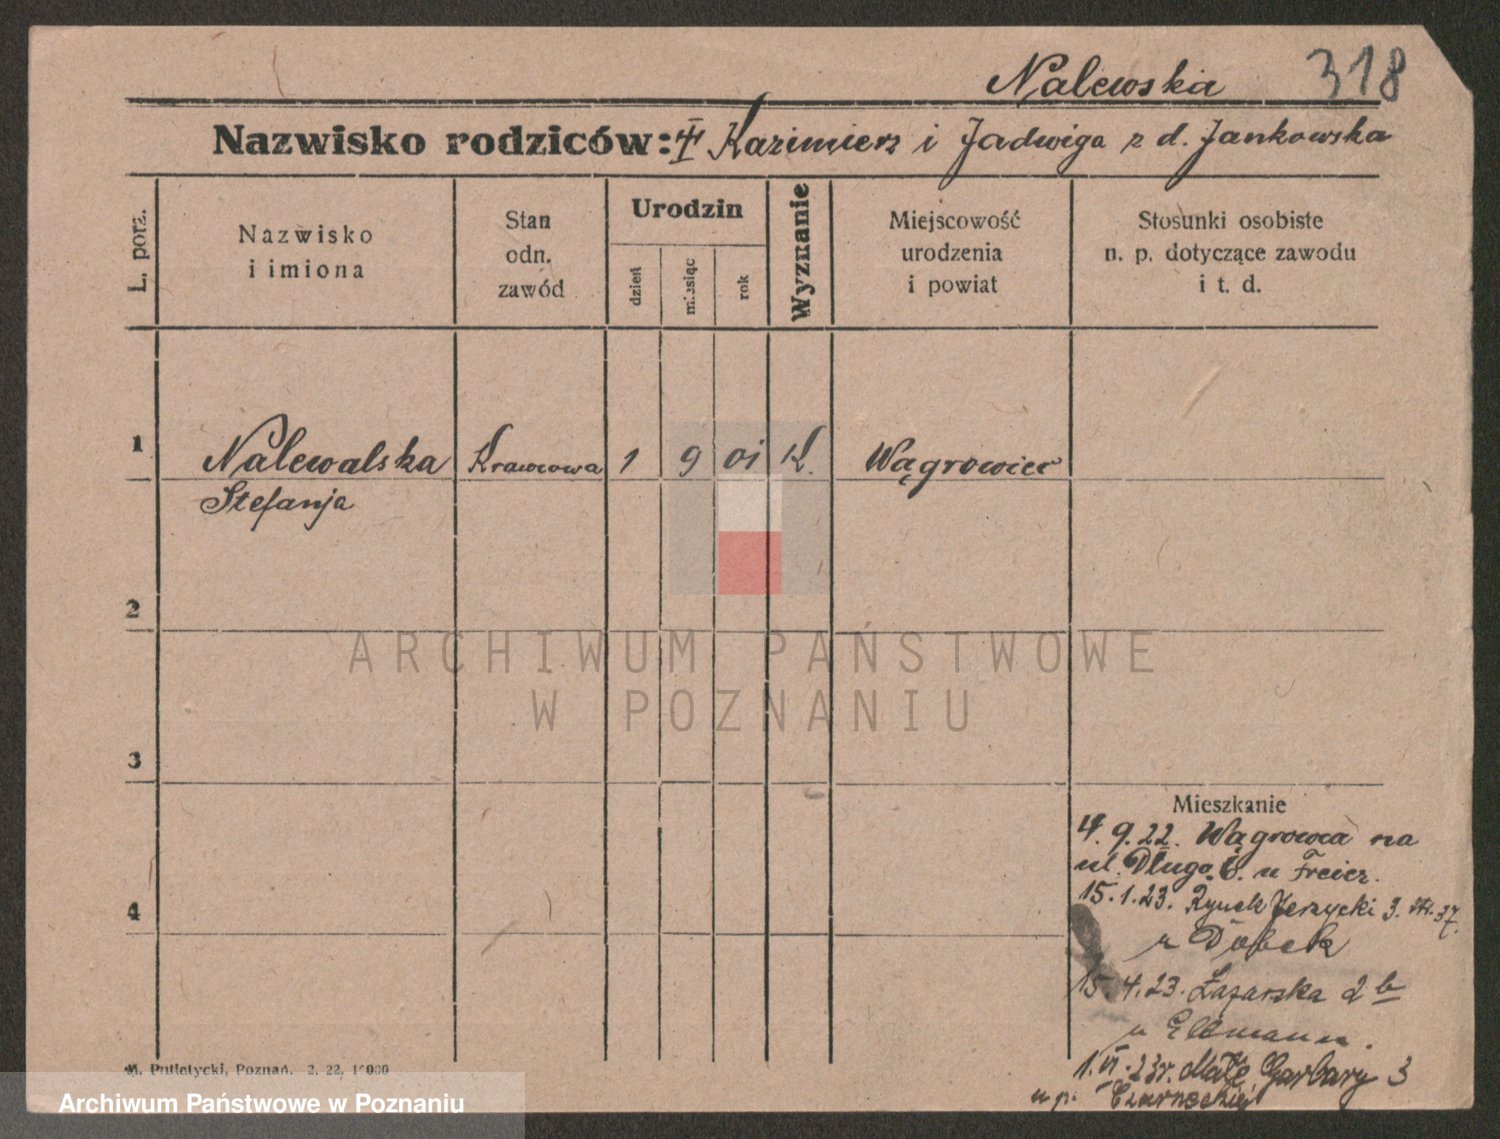 Nalewska 318
Nazwisko rodziców: Kazimierz i Jadwiga z d. Jankowska
L. porz.
Nazwisko
i imiona
Stan
odn.
zawód
Urodzin
dzień
miesiąc
rok
Wyznanie
Miejscowość
urodzenia
i powiat
Stosunki osobiste
n. p. dotyczące zawodu
i t. d.
1 Nalewalska Krawcowa 1 9 01 K. Wągrowiec
Stefanja
2
ARCHIWUM PAŃSTWOWE
W POZNANIU
3
Mieszkanie
4. 9. 22. Wągrowca na
ul. Długo 6. u Freier.
4
15. 1. 23. Rynek Jerzycki 3. 37.
u Dobek
15. 4. 23. Łazarska 2 b
u
1. VI. 23r. Małe Garbary 3
u p. Czarneckiej
M. Putiatycki, Poznań. 2. 22. 1000
Archiwum Państwowe w Poznaniu